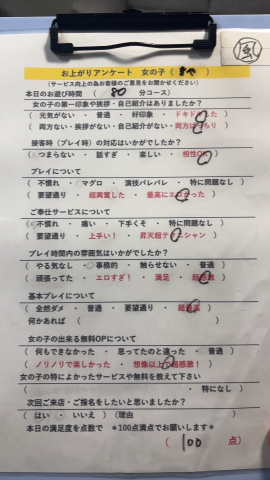 風
お上がりアンケート 女の子（　　）
（サービス向上の為お客様のご意見をお聞かせください）
本日のお遊び時間（ 80 分コース）
女の子の第一印象や挨拶・自己紹介はありましたか？
（ 元気がない ・ 普通 ・ 好印象 ・ ドキドキした ）
（ 両方ない・挨拶がない・自己紹介がない・両方ばっちり ）
接客時（プレイ時）の対応はいかがでしたか？
（ つまらない ・ 話すぎ ・ 楽しい ・ 相性OK ）
プレイについて
（ 不慣れ ・ マグロ ・ 演技バレバレ ・ 特に問題なし ）
（ 要望通り ・ 超興奮した ・ 最高にエロかった ）
ご奉仕サービスについて
（ 不慣れ ・ 痛い ・ 下手くそ ・ 特に問題なし ）
（ 要望通り ・ 上手い！ ・ 昇天超テクニシャン ）
プレイ時間内の雰囲気はいかがでしたか？
（ やる気なし ・ 事務的 ・ 触らせない ・ 普通 ）
（ 頑張ってた ・ エロすぎ！ ・ 満足 ・ 超感激 ）
基本プレイについて
（ 全然ダメ ・ 普通 ・ 要望通り ・ 超最高 ）
何かあれば（　　）
女の子の出来る無料OPについて
（ 何もできなかった ・ 思ってたのと違った ・ 普通 ）
（ ノリノリで楽しかった ・ 想像以上で超感激！ ）
女の子の特によかったサービスや無料を教えて下さい
（　　・ 特になし ）
次回ご来店・ご指名をしたいと思いましたか？
（ はい ・ いいえ ）（理由　　）
本日の満足度を点数で *100点満点でお願いします*
（ 100 点）